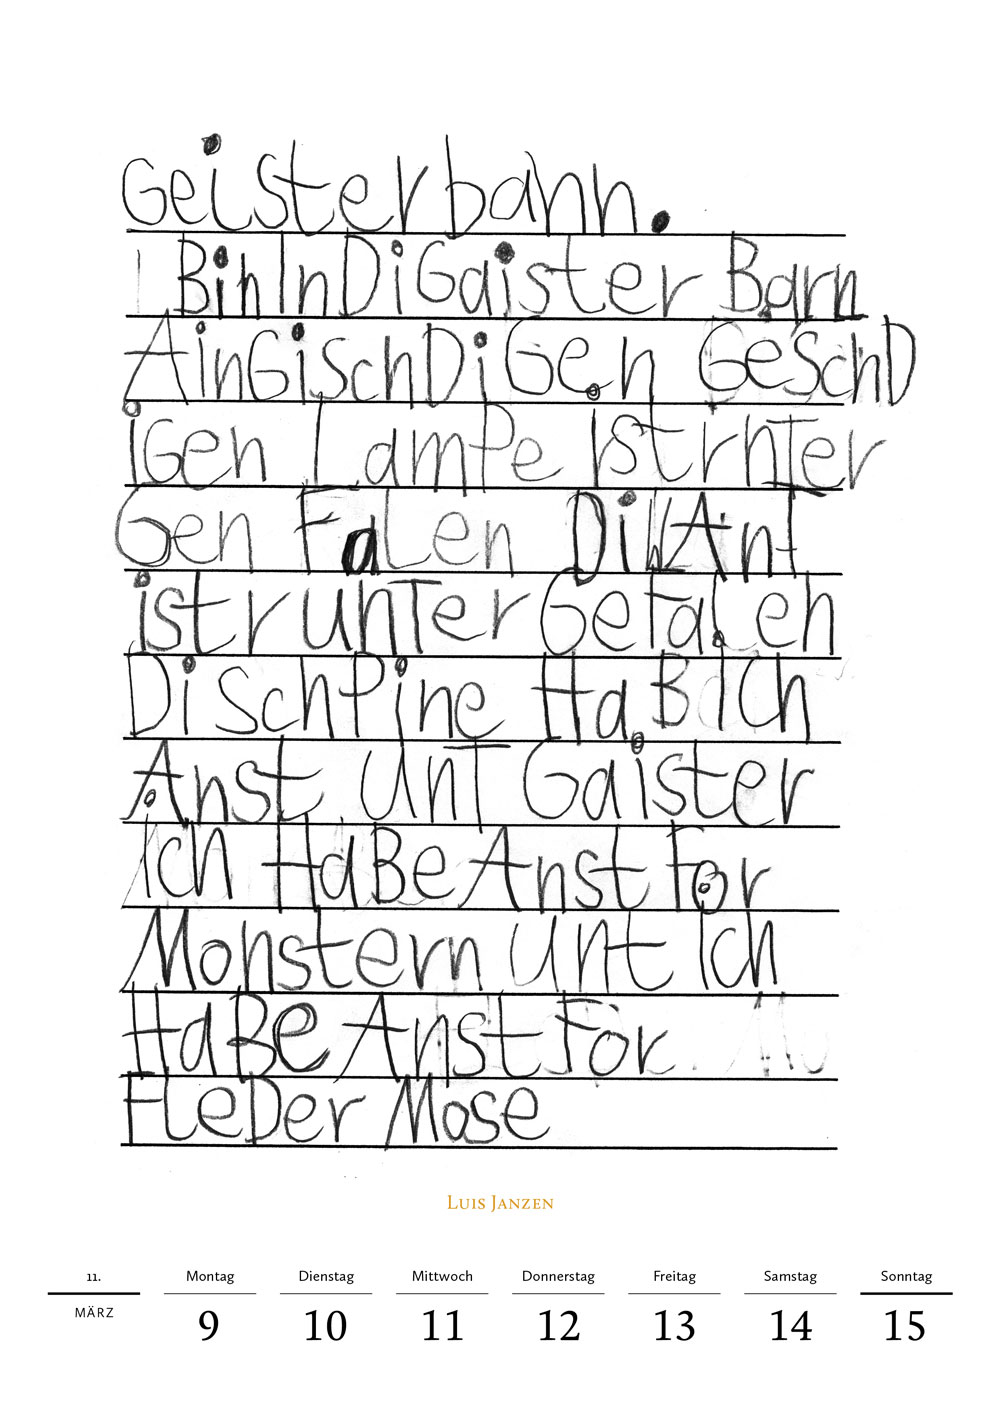 Geisterbann.
I BinInDiGaister Barn
AinGischDiGen GeschD
iGen LamPe Istrnter
Gen FaLen DiWAnt
istr unTer GefaLen
DiSchPine HaB ICh
Anst UnT Gaister
Ich HaBe Anst For
Monstern Unt Ich
HaBe Anst For
FleDer Mose
Luis Janzen
11. Montag Dienstag Mittwoch Donnerstag Freitag Samstag Sonntag
MÄRZ 9 10 11 12 13 14 15